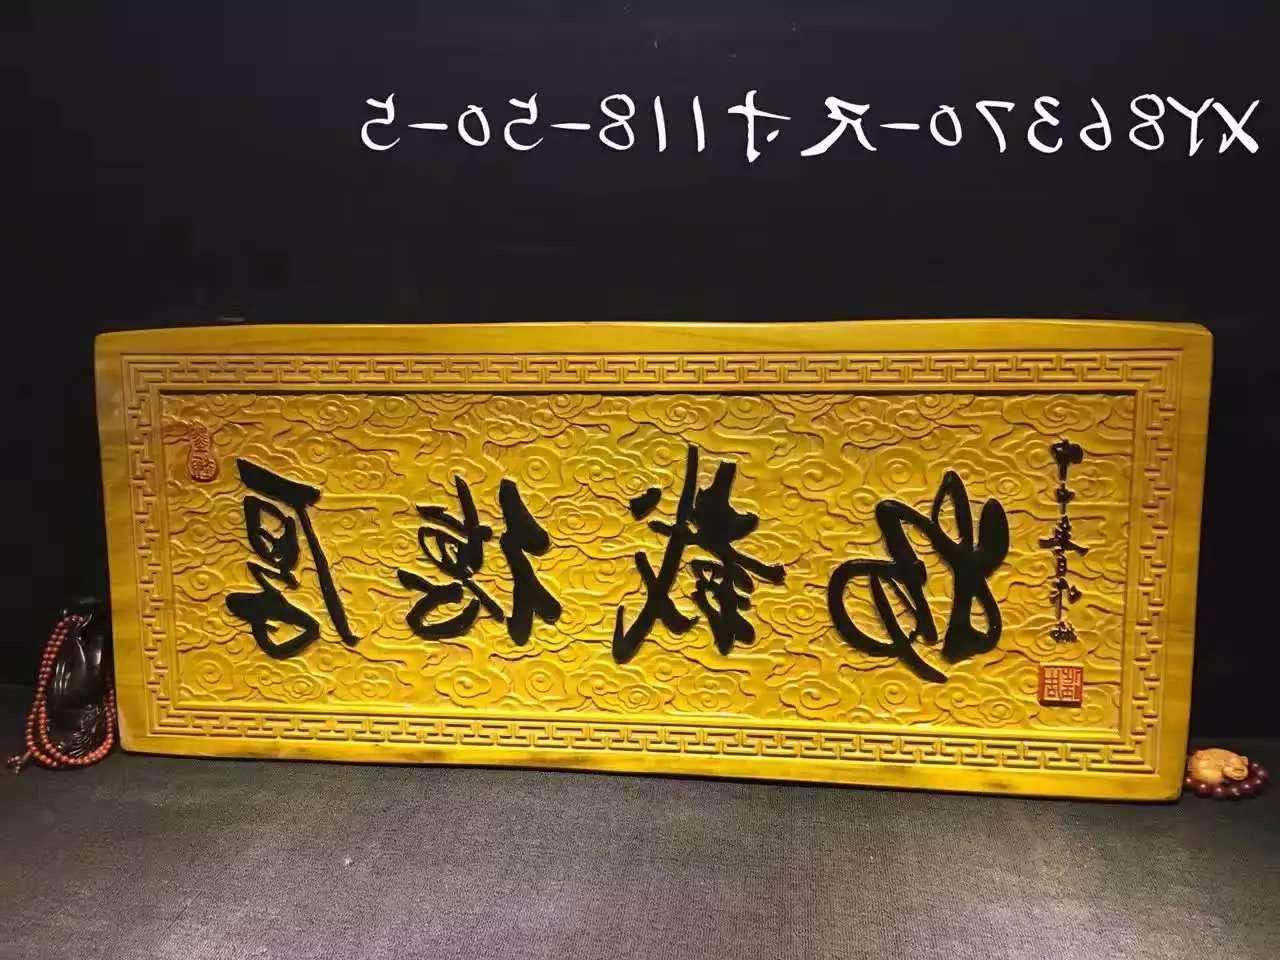 XY86370-尺寸118-50-5
厚德載物